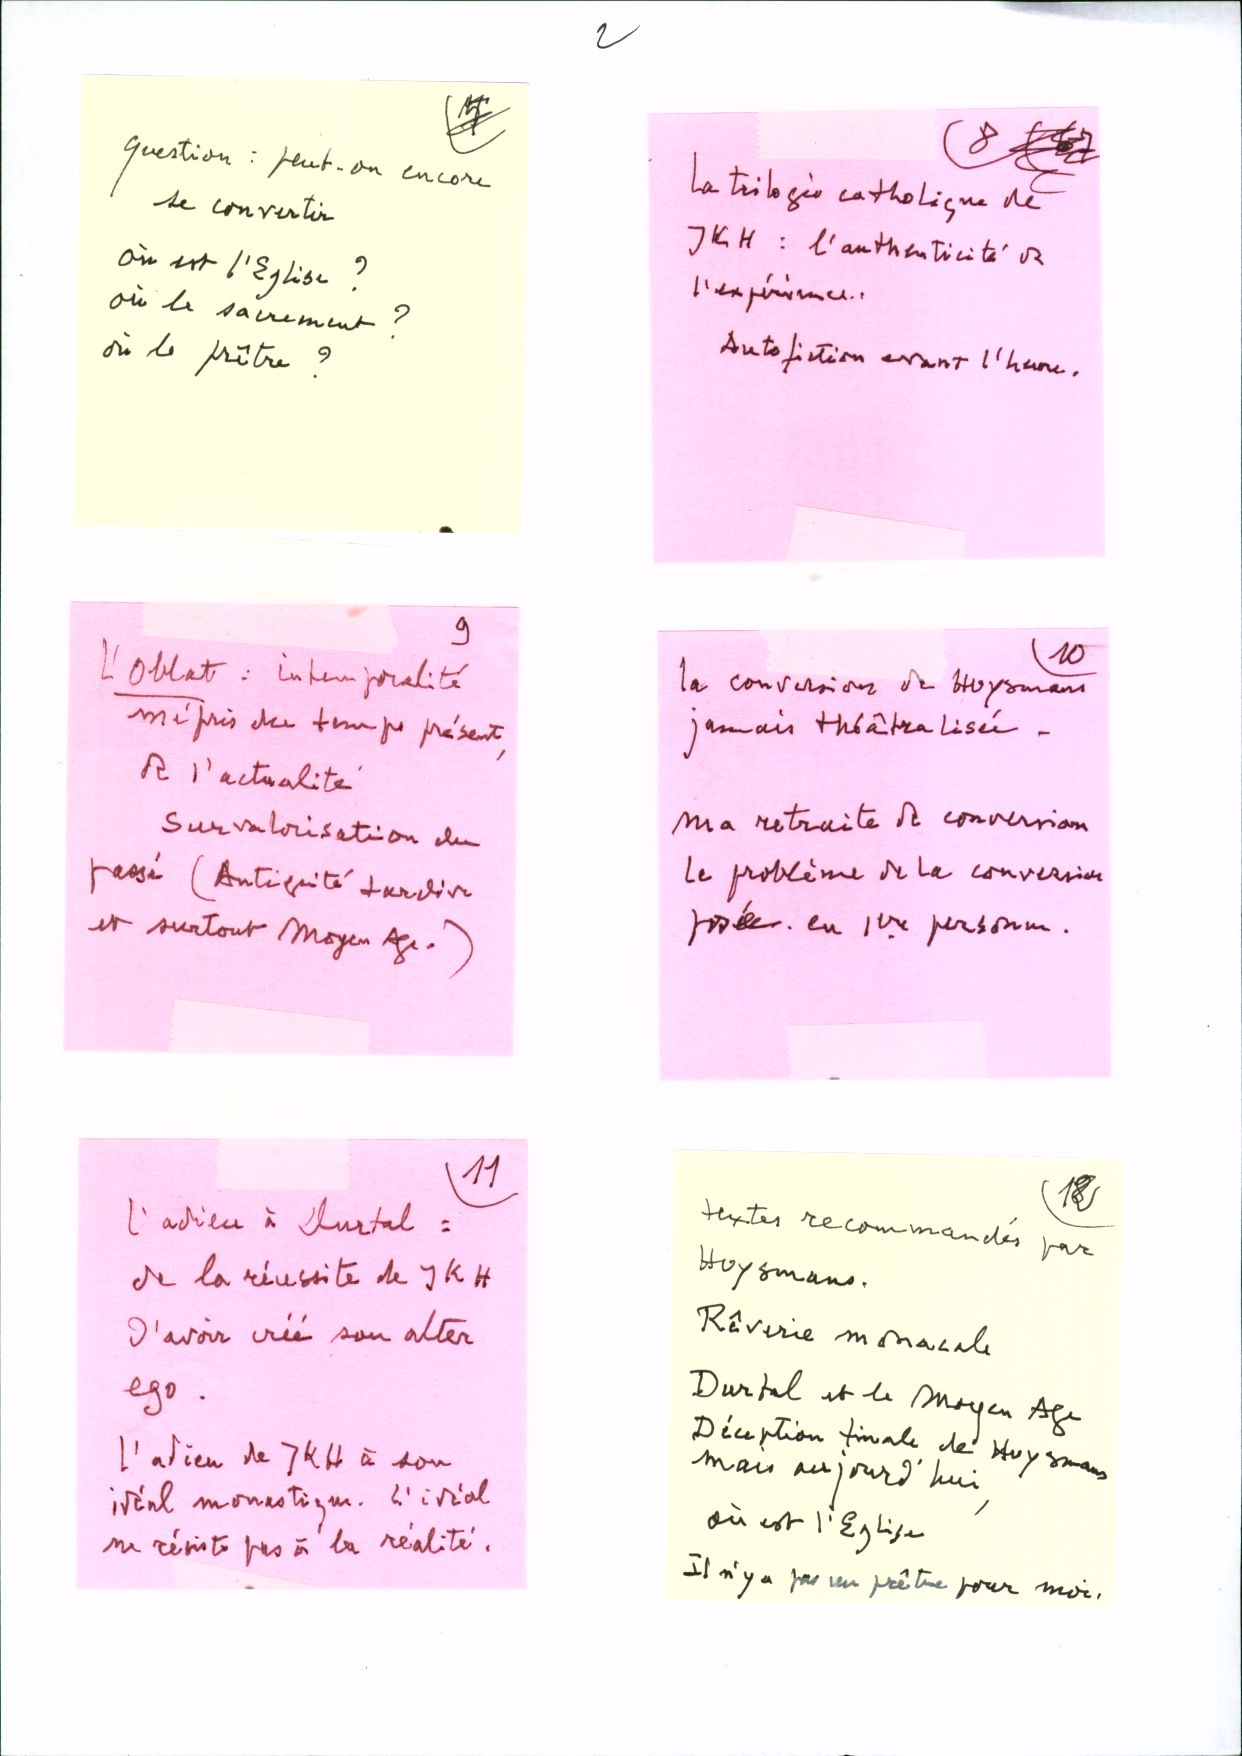 2
Question : peut-on encore
se convertir
où est l'Eglise ?
où le sacrement ?
où le prêtre ?
8
La trilogie catholique de
JKH : l'authenticité de
l'expérience.
Autofiction avant l'heure.
9
L'Oblat : intemporalité
mépris du temps présent,
de l'actualité
Survalorisation du
passé (Antiquité tardive
et surtout Moyen Age.)
10
la conversion de Huysmans
jamais théâtralisée -
ma retraite de conversion
Le problème de la conversion
posée. en 1ère personne.
11
L'adieu à Durtal =
de la réussite de JKH
D'avoir créé son alter
ego.
L'adieu de JKH à son
idéal monastique. L'idéal
ne résiste pas à la réalité.
textes recommandés par
Huysmans.
Rêverie monacale
Durtal et le Moyen Age
Déception finale de Huysmans
mais aujourd'hui,
où est l'Eglise
Il n'y a pas un prêtre pour moi.